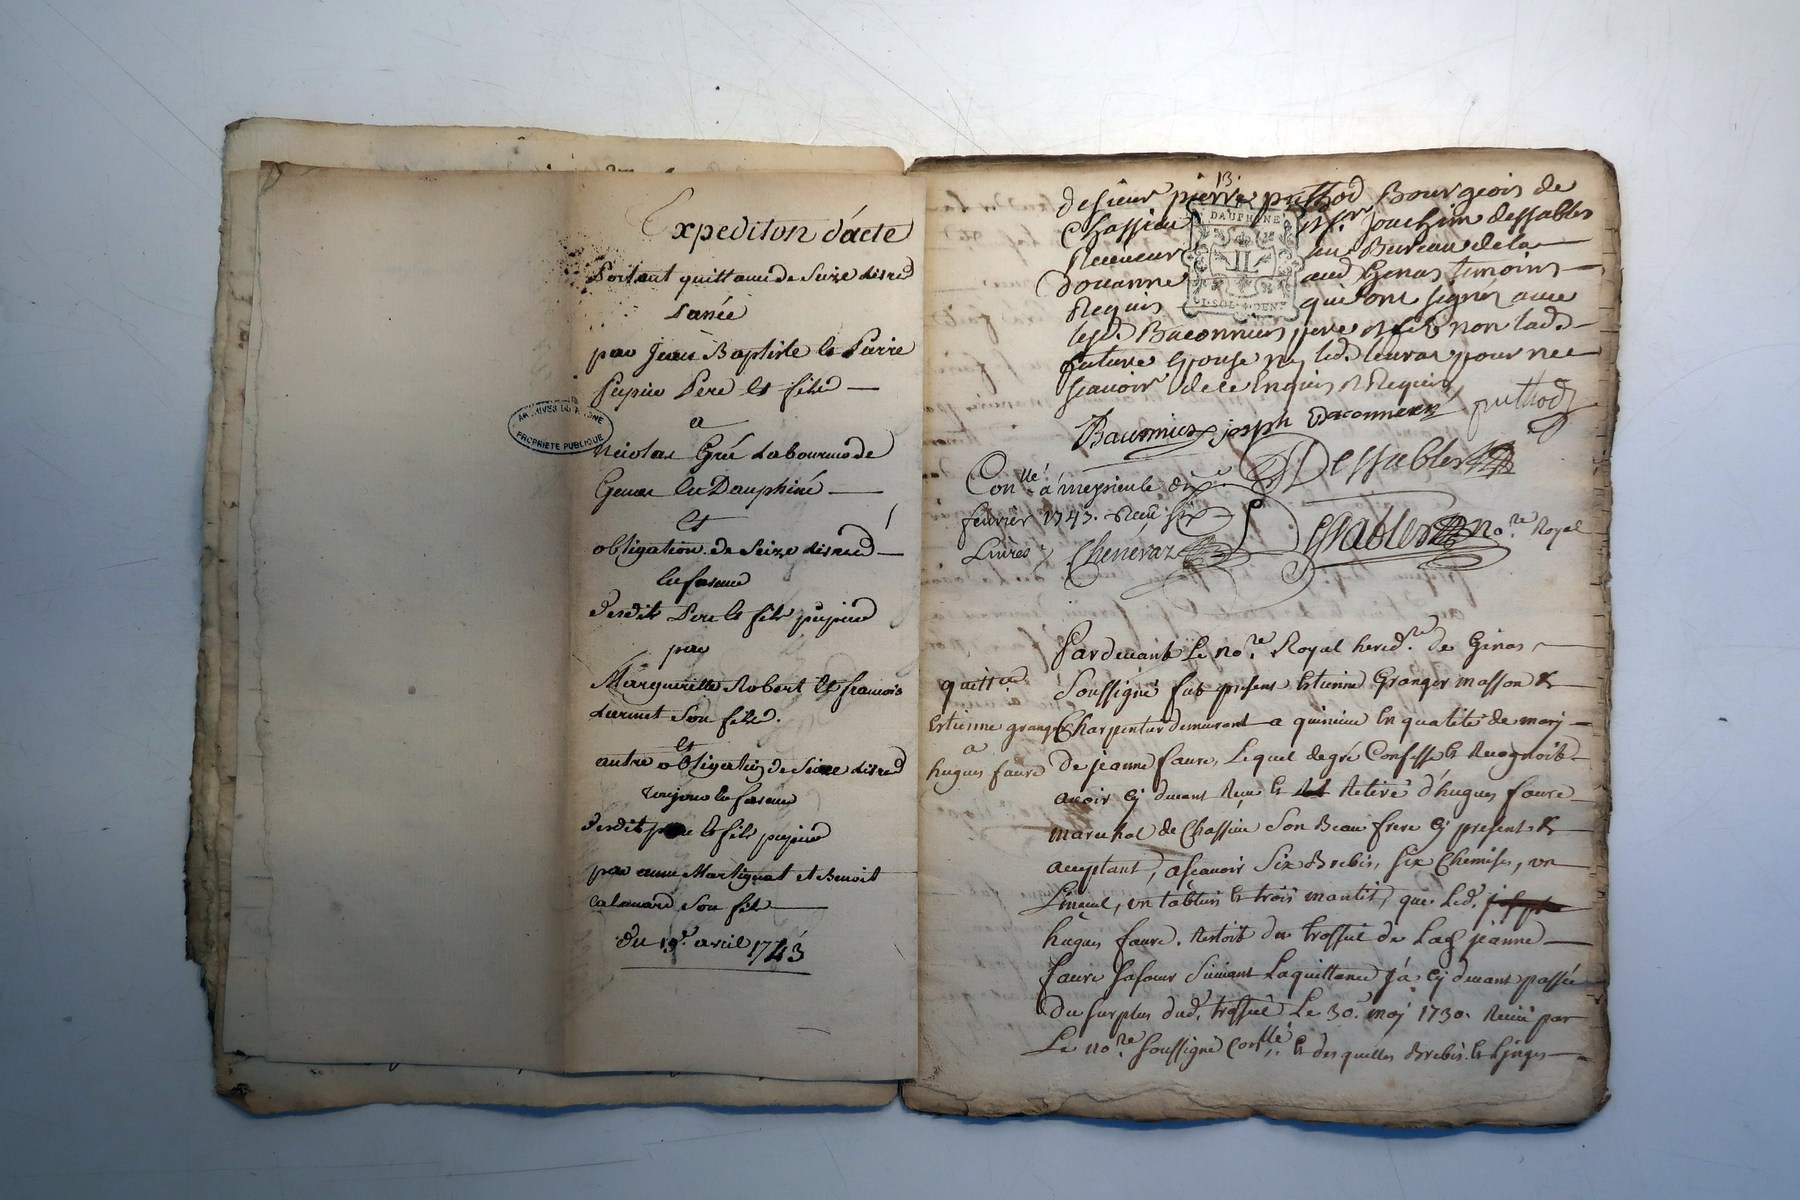 Expediton d'acte
Portant quittance de Seize
L'anée
par Jean Baptiste et Pierre
Pupier Pere et fils
a
Nicolas Gré Laboureur de
Genas en Dauphiné
Et
obligation de Seize
En faveur
desdits Pere et fils pupier
par
Margueritte Robert et francois
son fils.
et
autre obligation de Seize
toujour En faveur
desdits pere et fils pupier
par anne Martignat et Benoit
son fils
du 19e. avril 1743
ARCHIVES DU RHONE
PROPRIETE PUBLIQUE
13.
de sieur pierre puthod Bourgeois de
Chassieu & sr. Joachim dessables
Receveur au Bureau de la
Douanne aud Genas temoins
Requis qui ont signés avec
lesd. Baconniers pere et fils non lad.
future Epouse ny led. pour ne
scavoir de ce Enquis et Requis
DAUPHINE
II
SOL. DEN
Baconnier joseph Baconnier puthod
Conllé. a meyzieule
fevrier 1743. Reçu six
Livres Chenevaz
Dessables
Dessables no.re Royal
Pardevant Le no.re Royal hered.re de Genas
Soussigné fut present Estienne Granger masson &
Charpentier demeurant a En qualité de mary
de jeanne faure, Lequel de gré Confesse et Recognoit
avoir cy devant Reçu et Retiré d'hugues faure
marechal de Chassieu son Beau frere cy present &
acceptant, ascavoir six Brebis, six Chemises, un
Linceul, un tablier et trois mantis, que led.
hugues faure. Restoit du trossel de Lad jeanne
faure sa sœur suivant La quittance ja cy devant passée
du surplus dud. trossel Le 30. may 1730. Reçue par
Le no.re soussigné Conllé. et desquelles Brebis et Linges
quittce
Estienne granger
a
hugues faure